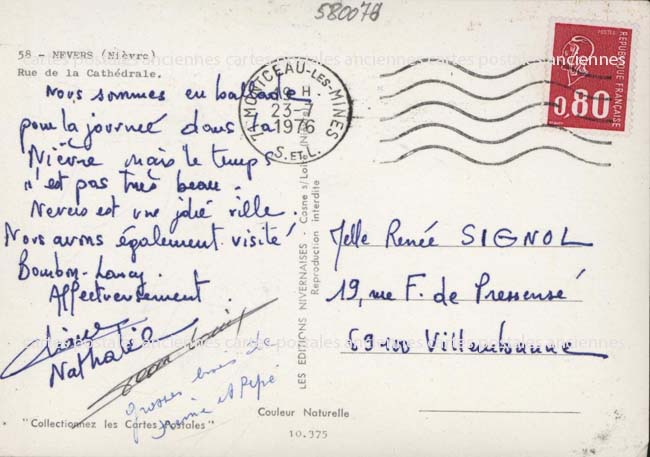 580078
58 - NEVERS (Nièvre)
Rue de la Cathédrale.
cartes postales anciennes cartes postales anciennes cartes postales anciennes
Nous sommes en ballade
pour la journée dans la
Nièvre mais le temps
n'est pas très beau.
Nevers est une jolie ville.
Nous avons également visité
Bourbon-Lancy.
Affectueusement.
Nathalie
grosses bises de
Mémé et Pépé
"Collectionnez les Cartes Postales"
71 MONTCEAU-LES-MINES
H
23-7
1976
S.ET L.
POSTES
REPUBLIQUE FRANÇAISE
0,80
LES EDITIONS NIVERNAISES - Cosne s/Loire (Nièvre)
Reproduction interdite
Melle Renée SIGNOL
19, rue F. de Pressensé
69100 Villeurbanne
Couleur Naturelle
10.375